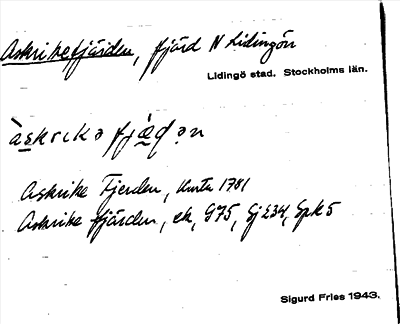 Askrikefjärden, fjärd N Lidingön
Lidingö stad. Stockholms län.
àskrikə fjæ̀dən
Askrike Fjerden, Karta 1781
Askrike fjärden, ek, G75, Sj234, Spk5
Sigurd Fries 1943.